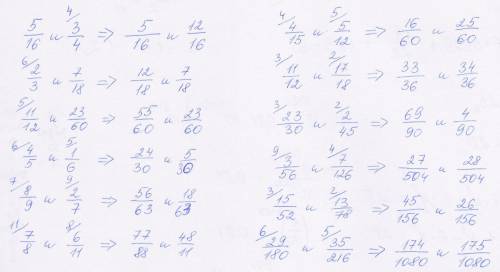 5/16 и ⁴/3/4 ⇒ 5/16 и 12/16
⁶/2/3 и 7/18 ⇒ 12/18 и 7/18
⁵/11/12 и 23/60 ⇒ 55/60 и 23/60
⁶/4/5 и ⁵/1/6 ⇒ 24/30 и 5/30
⁷/8/9 и ⁹/2/7 ⇒ 56/63 и 18/63
¹¹/7/8 и ⁸/6/11 ⇒ 77/88 и 48/11
⁴/4/15 и ⁵/5/12 ⇒ 16/60 и 25/60
³/11/12 и ²/17/18 ⇒ 33/36 и 34/36
³/23/30 и ²/2/45 ⇒ 69/90 и 4/90
⁹/3/56 и ⁴/7/126 ⇒ 27/504 и 28/504
³/15/52 и ²/13/78 ⇒ 45/156 и 26/156
⁶/29/180 и ⁵/35/216 ⇒ 174/1080 и 175/1080